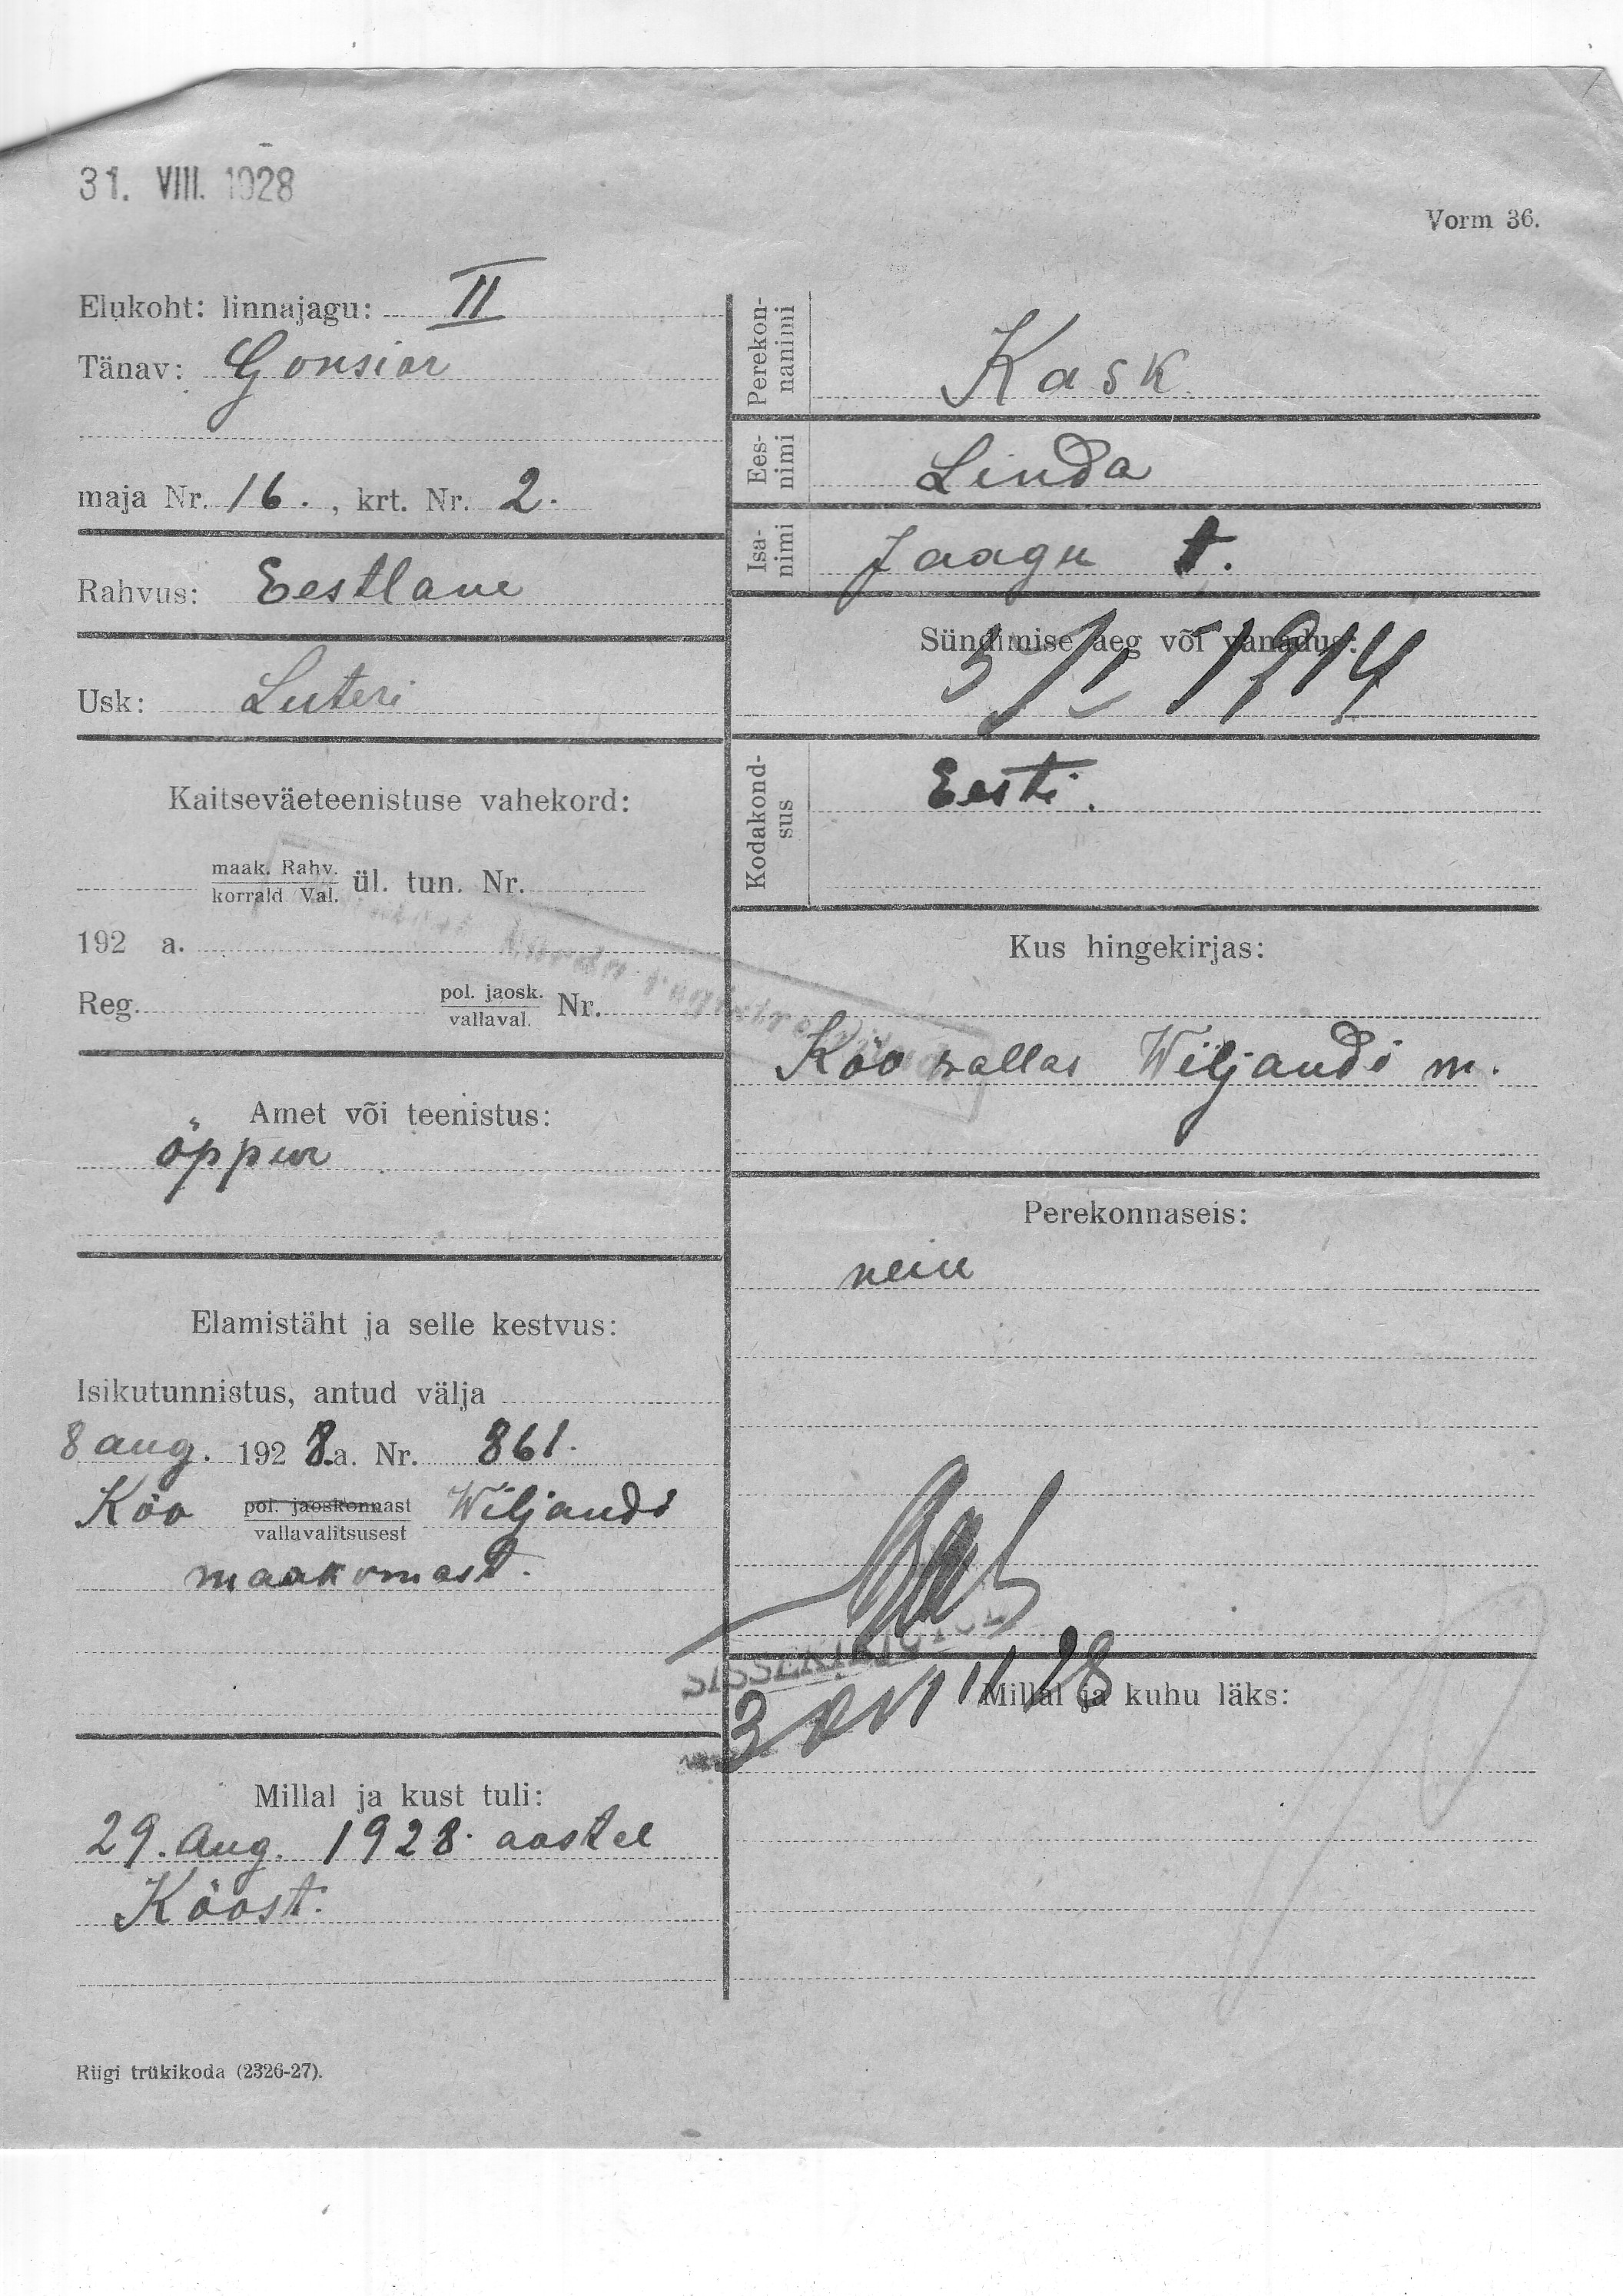 31. VIII. 1928
Vorm 36.
Elukoht: linnajagu: II
Tänav: Gonsior
maja Nr. 16. , krt. Nr. 2.
Rahvus: Eestlane
Usk: Luteri
Kaitseväeteenistuse vahekord:
maak. Rahv.
korrald. Val. ül. tun. Nr.
192 a.
Reg. pol. jaosk.
vallaval. Nr.
Amet või teenistus:
õppur
Elamistäht ja selle kestvus:
Isikutunnistus, antud välja
8 aug. 192 8.a. Nr. 861.
Kõo pol. jaoskonnast
vallavalitsusest Wiljandi
maakonnast.
Millal ja kust tuli:
29. Aug. 1928. aastal
Kõost.
Riigi trükikoda (2326-27).
Perekon-
nanimi
Kask.
Ees-
nimi
Linda
Isa-
nimi
Jaagu t.
Sündimise aeg või vanadus:
5/I 1914
Kodakond-
sus
Eesti.
Kus hingekirjas:
Kõo vallas Wiljandi m.
Perekonnaseis:
neiu
Millal ja kuhu läks: